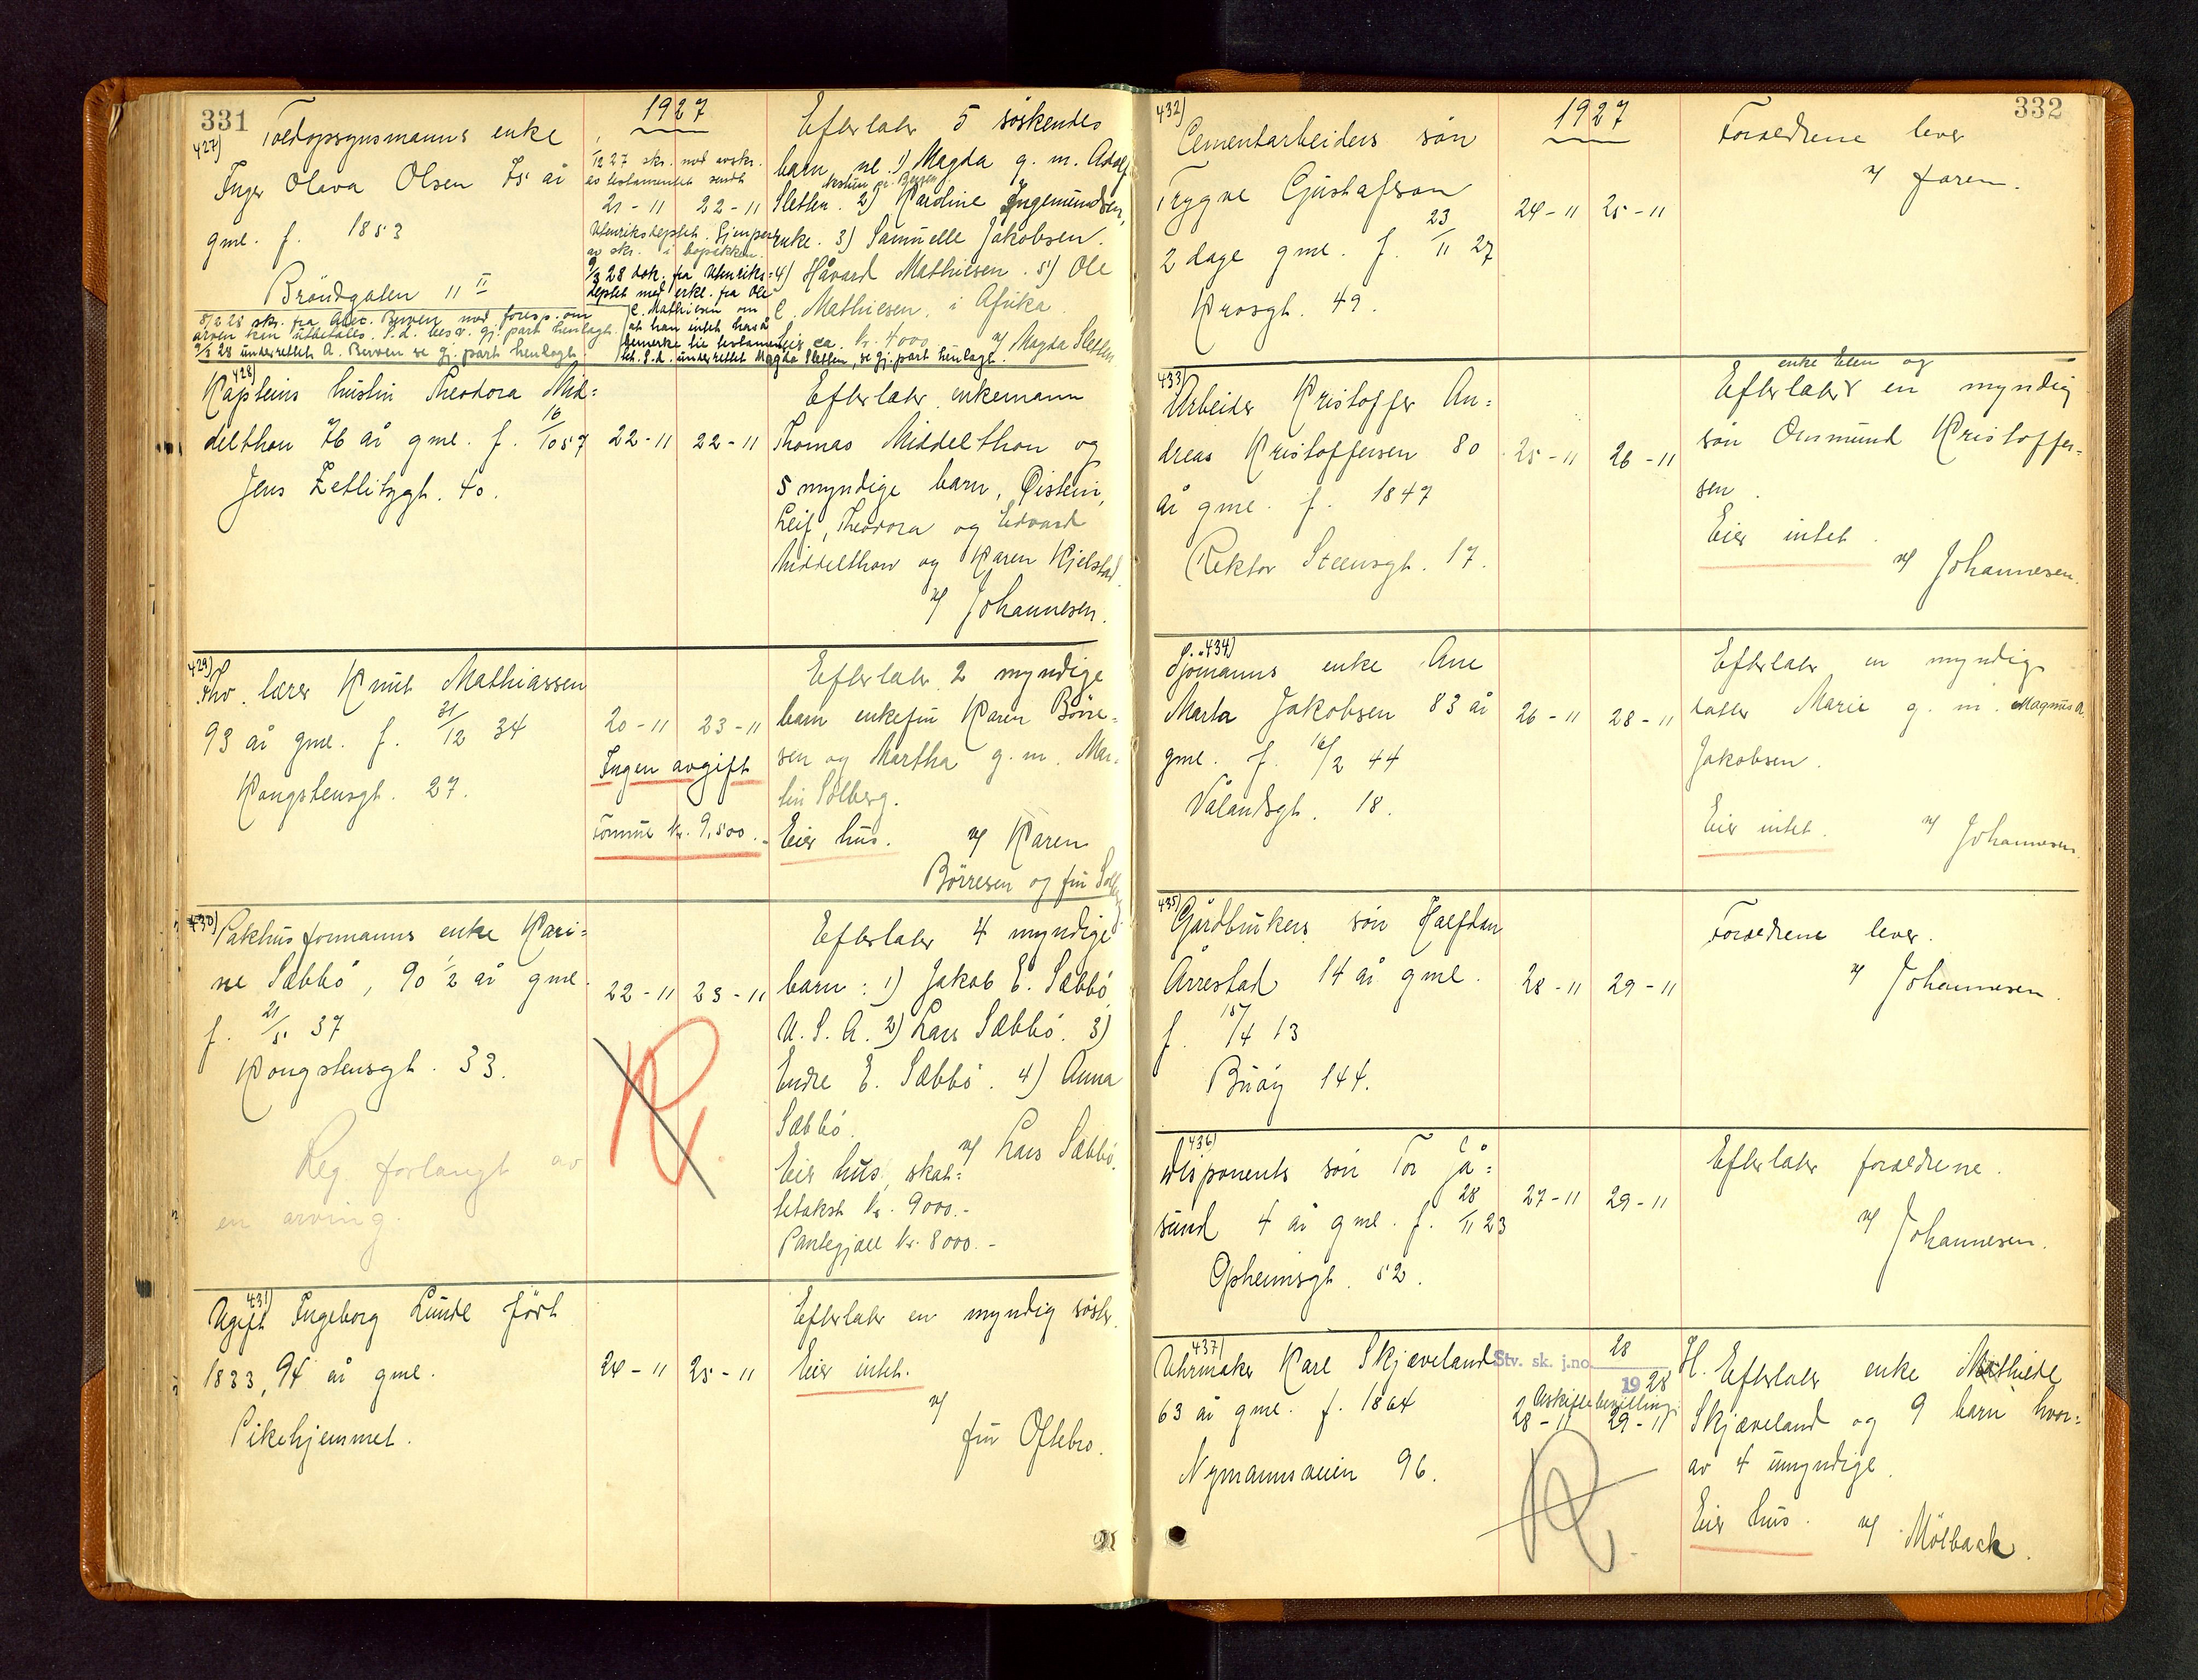 331
1927
427)
Toldopsynsmanns enke
Inger Olava Olsen 75 år
gml. f. 1853
Bröndgaten 11 II
8/2 28 skr. fra Adv. Berven med foresp. om
arven kan utbetales. S.d. besv. gj. part henlagt.
9/2 28 underrettet A. Berven se gj. part henlagt.
1/12 27 skr. med avskr.
av testamentet sendt
21-11 22-11
Utenriksdeptet. Gjenpart
av skr. i bopakken.
9/3 28 dok. fra Utenriks=
deptet med erkl. fra Ole
C. Mathiesen om
at han intet har å
bemerke til testamen-
tet. S.d. underrettet Magda Sletten, se gj. part henlagt.
Efterlater 5 söskendes
barn nl. 1) Magda g. m. Adolf
Sletten. 2) Karoline Ingemundsen,
enke. 3) Samuelle Jakobsen.
4) Håvard Mathiesen. 5) Ole
C. Mathiesen, i Afrika.
Eier ca. kr. 4000. v/ Magda Sletten
428)
Kapteins hustru Theodora Mid=
delthon 76 år gml. f. 16/10 57
Jens Zetlitzgt. 40.
22-11 22-11
Efterlater enkemann
Thomas Middelthon og
5 myndige barn, Øistein,
Leif, Theodora og Edvard
Middelthon og Karen Kjelstad
v/ Johannesen.
429)
fhv. lærer Knut Mathiassen
93 år gml. f. 31/12 34
Kongstensgt. 27.
20-11 23-11
Ingen avgift
Formue kr. 9,500.-
Efterlater 2 myndige
barn enkefru Karen Börre=
sen og Martha g. m. Mar=
tin Solberg.
Eier hus. v/ Karen
Börresen og fru Solberg
430)
Pakhusformanns enke Kari=
ne Sæbbö, 90 1/2 år gml.
f. 21/5 37
Kongstensgt. 33.
Reg. forlangt av
en arving.
22-11 23-11
R.
Efterlater 4 myndige
barn: 1) Jakob E. Sæbbö
U.S.A. 2) Lars Sæbbö. 3)
Endre E. Sæbbö. 4) Anna
Sæbbö.
v/ Lars Sæbbö.
Eier hus, skat=
tetakst kr. 9000.-
Pantegjæld kr. 8000.-
431)
Ugift Ingeborg Lunde född
1833, 94 år gml.
Pikehjemmet.
24-11 25-11
Efterlater en myndig söster.
Eier intet.
v/
fru Oftebro.
332
1927
432)
Cementarbeiders sön
Trygve Gustafson
2 dage gml. f. 23/11 27
Krosgt. 49.
24-11 25-11
Forældrene lever
v/ faren.
433)
Arbeider Kristoffer An=
dreas Kristoffersen 80
år gml. f. 1847
Rektor Steensgt. 17.
25-11 26-11
enke Elen og
Efterlater en myndig
sön Osmund Kristoffer=
sen.
Eier intet.
v/ Johannesen.
434)
Sjömanns enke Ane
Marta Jakobsen 83 år
gml. f. 16/2 44
Vålandsgt. 18.
26-11 28-11
Efterlater en myndig
datter Marie g. m. Magnus A.
Jakobsen.
Eier intet. v/ Johannesen.
435)
Gårdbrukers sön Halfdan
Årrestad 14 år gml.
f. 15/4 13
Buöy 144.
28-11 29-11
Forældrene lever.
v/ Johannesen.
436)
Disponents sön Tor Jå=
sund 4 år gml. f. 28/11 23
Opheimsgt. 52.
27-11 29-11
Efterlater forældrene.
v/ Johannesen.
437)
Uhrmaker Karl Skjæveland
63 år gml. f. 1864
Nymannsveien 96.
Stv. sk. j.no. 28
19 28
Uskiftebevilling.
28-11 29-11
R.
H. Efterlater enke Mathilde
Skjæveland og 9 barn hvor=
av 4 umyndige.
Eier hus. v/ Mölbach.